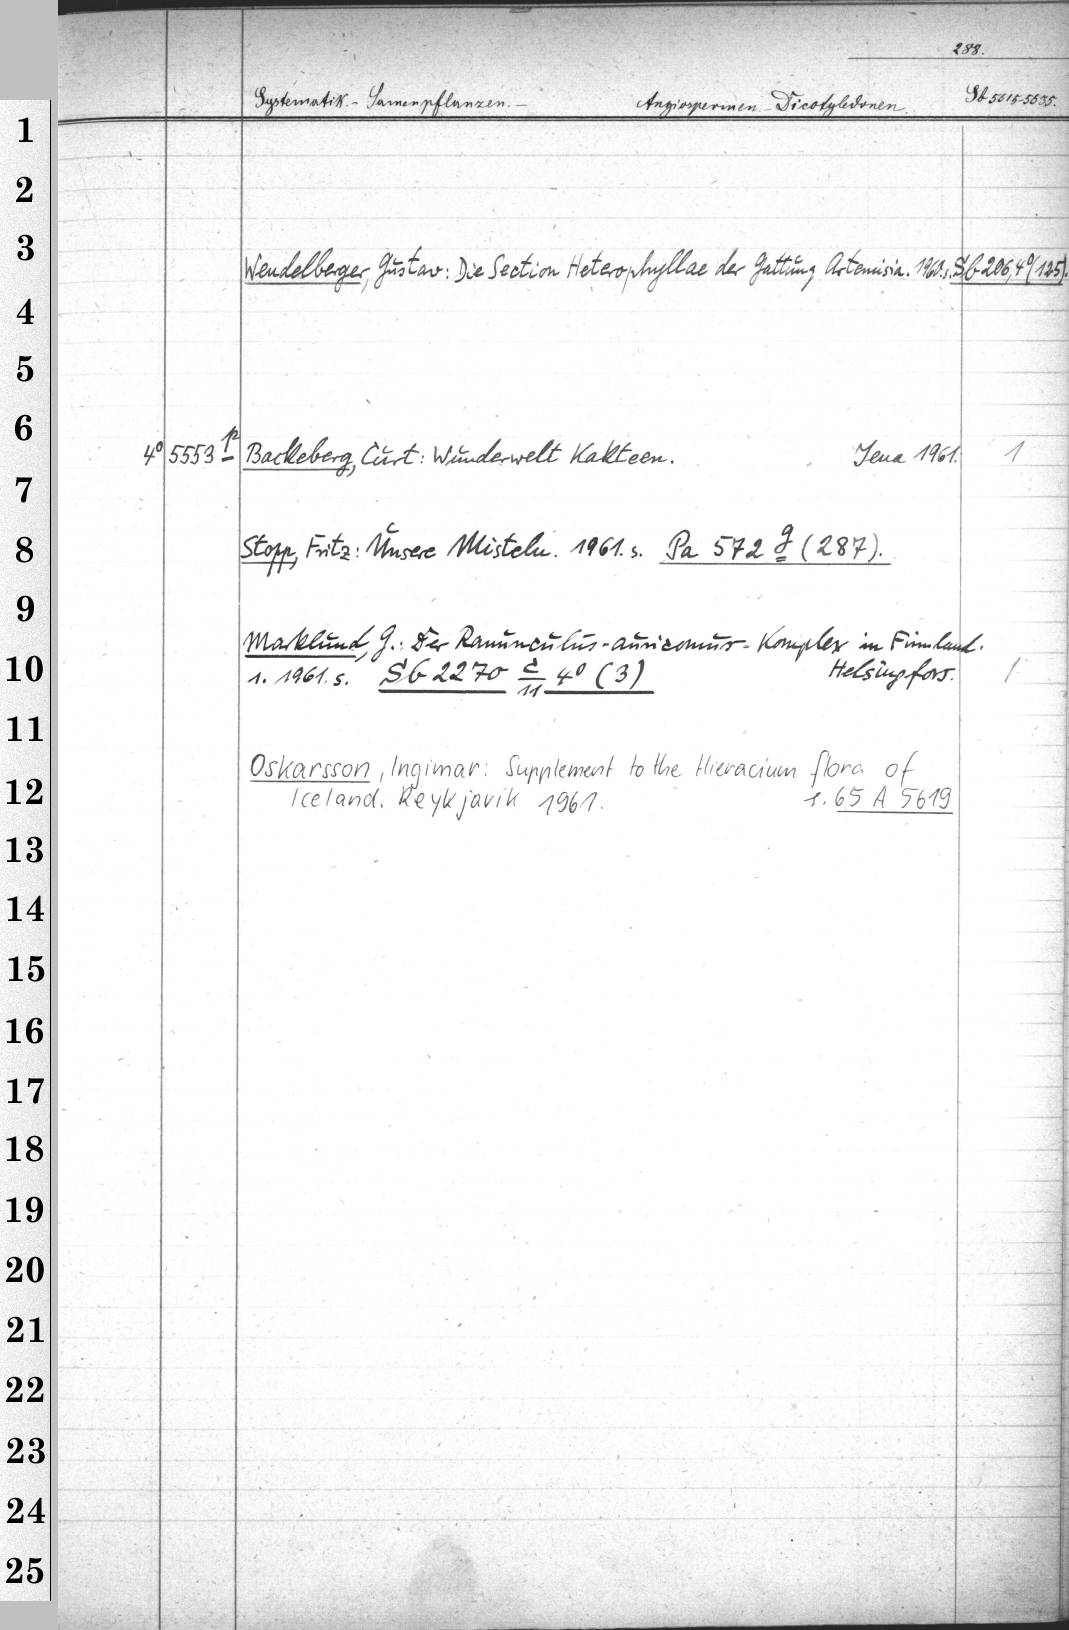 288.
Systematik. - Samenpflanzen. - Angiospermen - Dicotyledonen. Sb 5515-5535.
1
2
3
Wendelberger, Gustav: Die Section Heterophyllae der Gattung Artemisia. 1960. s. Sb 206, 4° (125).
4
5
6
4° 5553 p Backeberg, Curt: Wunderwelt Kakteen. Jena 1961. 1
7
8
Stopp, Fritz: Unsere Misteln. 1961. s. Pa 572 g (287).
9
Marklund, G.: Der Ranunculus-auricomus-Komplex in Finnland.
10
1. 1961. s. Sb 2270 c/11 4° (3) Helsingfors. 1
11
Oskarsson, Ingimar: Supplement to the Hieracium flora of
12
Iceland. Reykjavik 1961. s. 65 A 5619
13
14
15
16
17
18
19
20
21
22
23
24
25